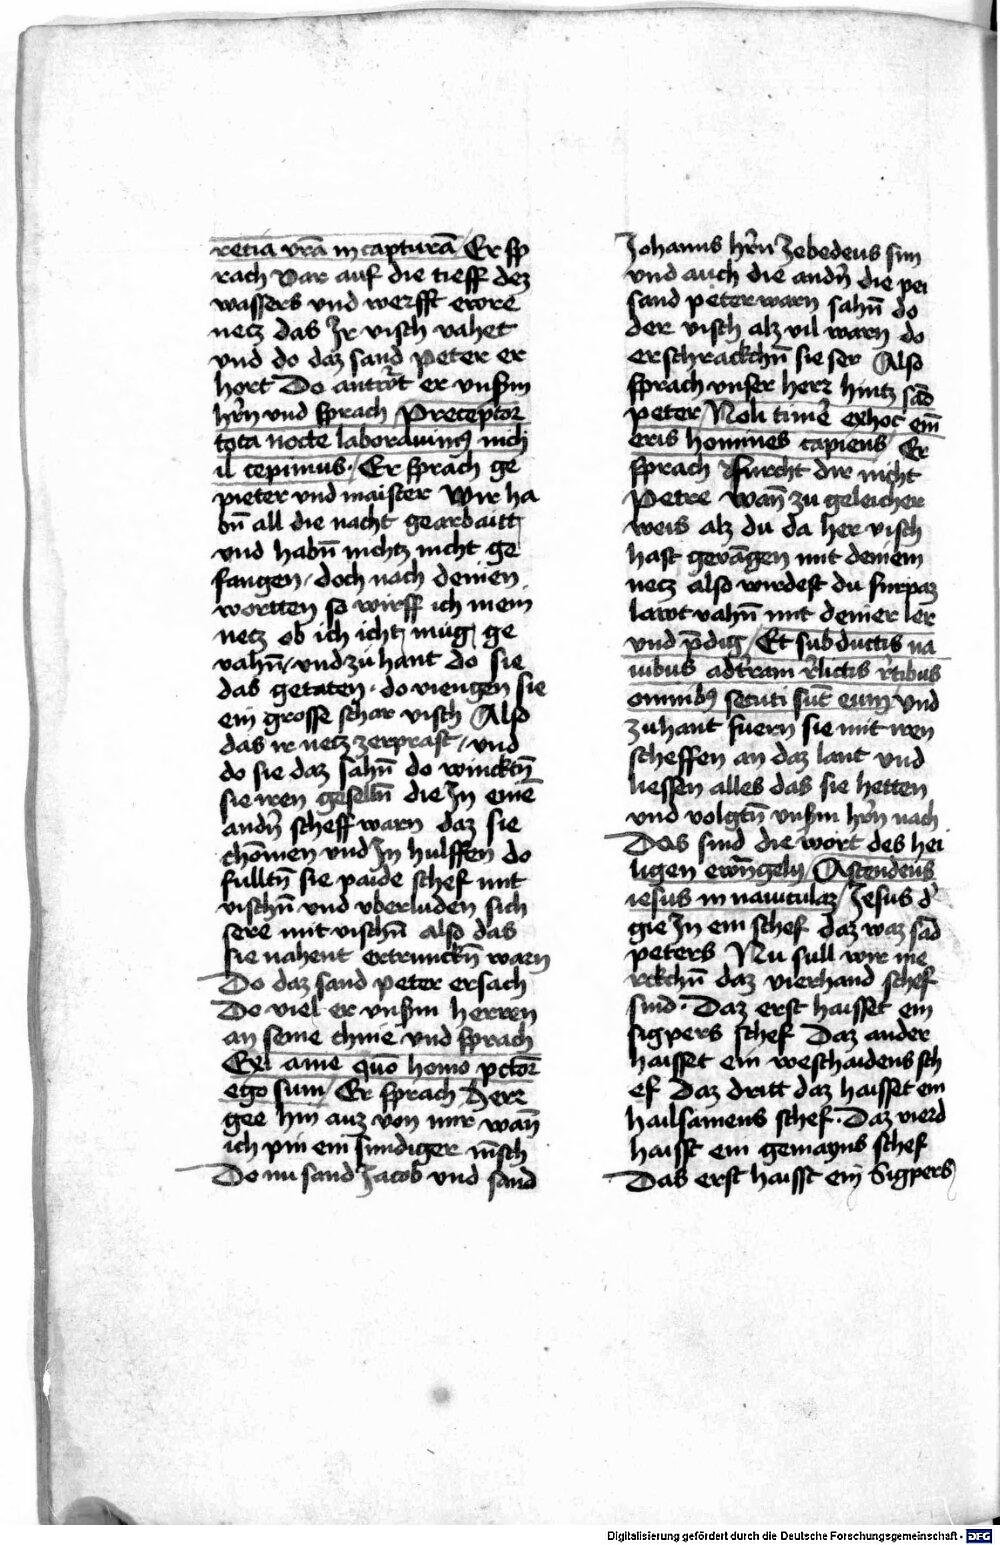 retia vr̄a in capturā / Er sp
rach Var auf die tieff dez
wassers vnd werfft ewre
necz das Jr visch vahet
vnd do daz sand Peter er
hort Do antw̄rt er vnsm̄
hr̄n vnd sprach / Preceptor
tota nocte laborauimꝰ nich
il cepimus · / Er sprach ge
pieter vnd maister Wir ha
bn̄ all die nacht gearbaitt
vnd habn̄ nichtz nicht ge
fangen / doch nach deinen
wortten so wirff ich mein
necz ob ich ichtz müg ge
vahn̄ / vnd zu hant do sie
das getaten · do viengen sie
ein grosse schar visch Also
das ir necz zerprast / vnd
do sie daz sahn̄ do wincktn̄
sie iren geselln̄ die Jn einē
andn̄ scheff warn daz sie
chōmen vnd Jn hulffen do
fulltn̄ sie paide schef mit
vischn̄ vnd vberluden sich
sere mit vischn̄ also das
sie nahent ertrunckn̄ warn
Do daz sand peter ersach
Do viel er vnsm̄ herren
an seine chnie vnd sprach
Exi a me quō homo pctōr
ego sum / Er sprach Herr
gee hin auz von mir wan̄
ich pin ein sundiger mn̄sch
Do nu sand Jacob vnd sand
Johanns hr̄n Zebedeus sun
vnd auch die andn̄ die pei
sand peter warn sahn̄ do
der visch alz vil warn do
erschrackchn̄ sie ser Also
sprach vnser herr hintz sād
peter / Noli timē exhoc em̄
eris homines capiens / Er
sprach furcht dir nicht
Petre wan̄ zu geleicher
weis alz du da her visch
hast gevāngen mit deinem
necz also wirdest du furpaz
lawt vahn̄ mit deiner ler
vnd p̄dig / Et subductis na
uibus ad tr̄ram r̄lictis r̄tibus
omnibꝫ secuti sūt eum / vnd
zuhant fuern sie mit iren
scheffen an daz lant vnd
liessen alles das sie hetten
vnd volgtn̄ vnsm̄ hr̄n nach
Das sind die wort des hei
ligen ewn̄gely / Ascendens
iesus in nauiculaz / Jesus d̄
gie Jn ein schef daz waz sād
peters Nu sull wir me
rckchn̄ daz vierhand schef
sind · Daz erst haisset ein
sigpers schef Daz ander
haisset ein weschaidens sch
ef Daz dritt daz haisset ein
hailsamens schef · Daz vierd
haisst ein gemayns schef
Das erst haisst ein Sigpers
Digitalisierung gefördert durch die Deutsche Forschungsgemeinschaft - DFG